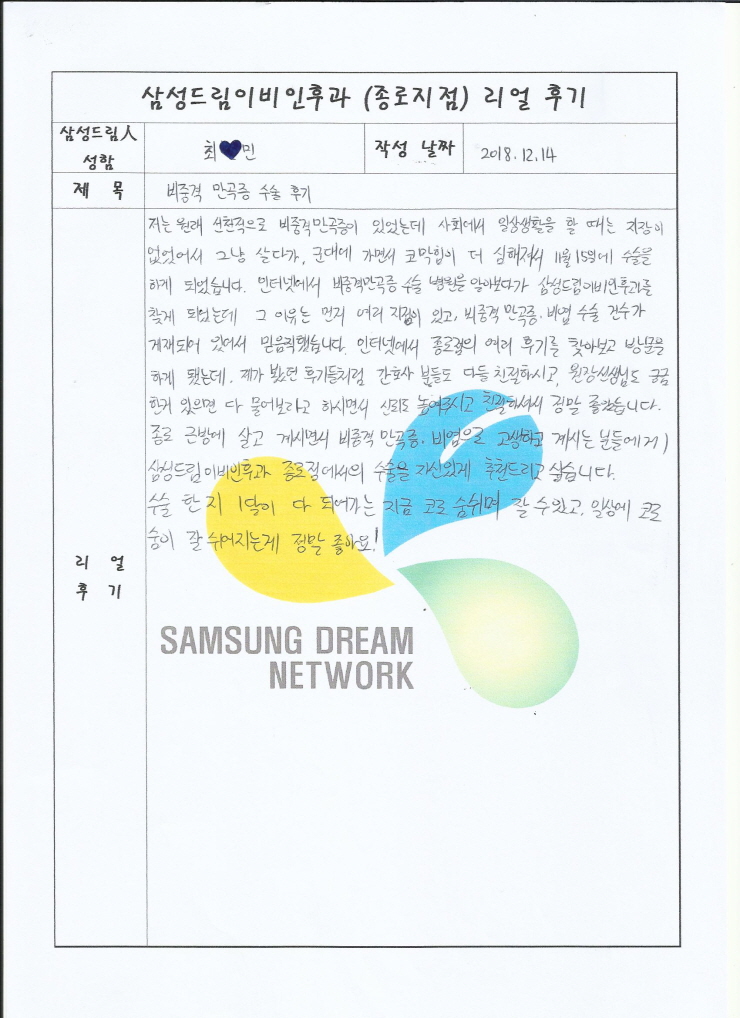 삼성드림이비인후과 (종로지점) 리얼 후기
삼성드림人
성함
최♥민
작성 날짜
2018.12.14
제 목
비중격 만곡증 수술 후기
저는 원래 선천적으로 비중격만곡증이 있었는데 사회에서 일상생활을 할 때는 지장이
없었어서 그냥 살다가, 군대에 가면서 코막힘이 더 심해져서 11월 15일에 수술을
하게 되었습니다. 인터넷에서 비중격만곡증 수술 병원을 알아보다가 삼성드림이비인후과를
찾게 되었는데 그 이유는 먼저 여러 지점이 있고, 비중격 만곡증. 비염 수술 건수가
게재되어 있어서 믿음직했습니다. 인터넷에서 종로점의 여러 후기를 찾아보고 방문을
하게 됐는데. 제가 봤던 후기들처럼 간호사 분들도 다들 친절하시고, 원장선생님도 궁금
한거 있으면 다 물어보라고 하시면서 신뢰도 높여주시고 친절하셔서 정말 좋았습니다.
종로 근방에 살고 계시면서 비중격 만곡증. 비염으로 고생하고 계시는 분들에게
삼성드림이비인후과 종로점에서의 수술을 자신있게 추천드리고 싶습니다.
수술 한 지 1달이 다 되어가는 지금 코로 숨쉬며 잘 수 있고, 일상에 코로
숨이 잘 쉬어지는게 정말 좋아요!
리 얼
후 기
SAMSUNG DREAM
NETWORK